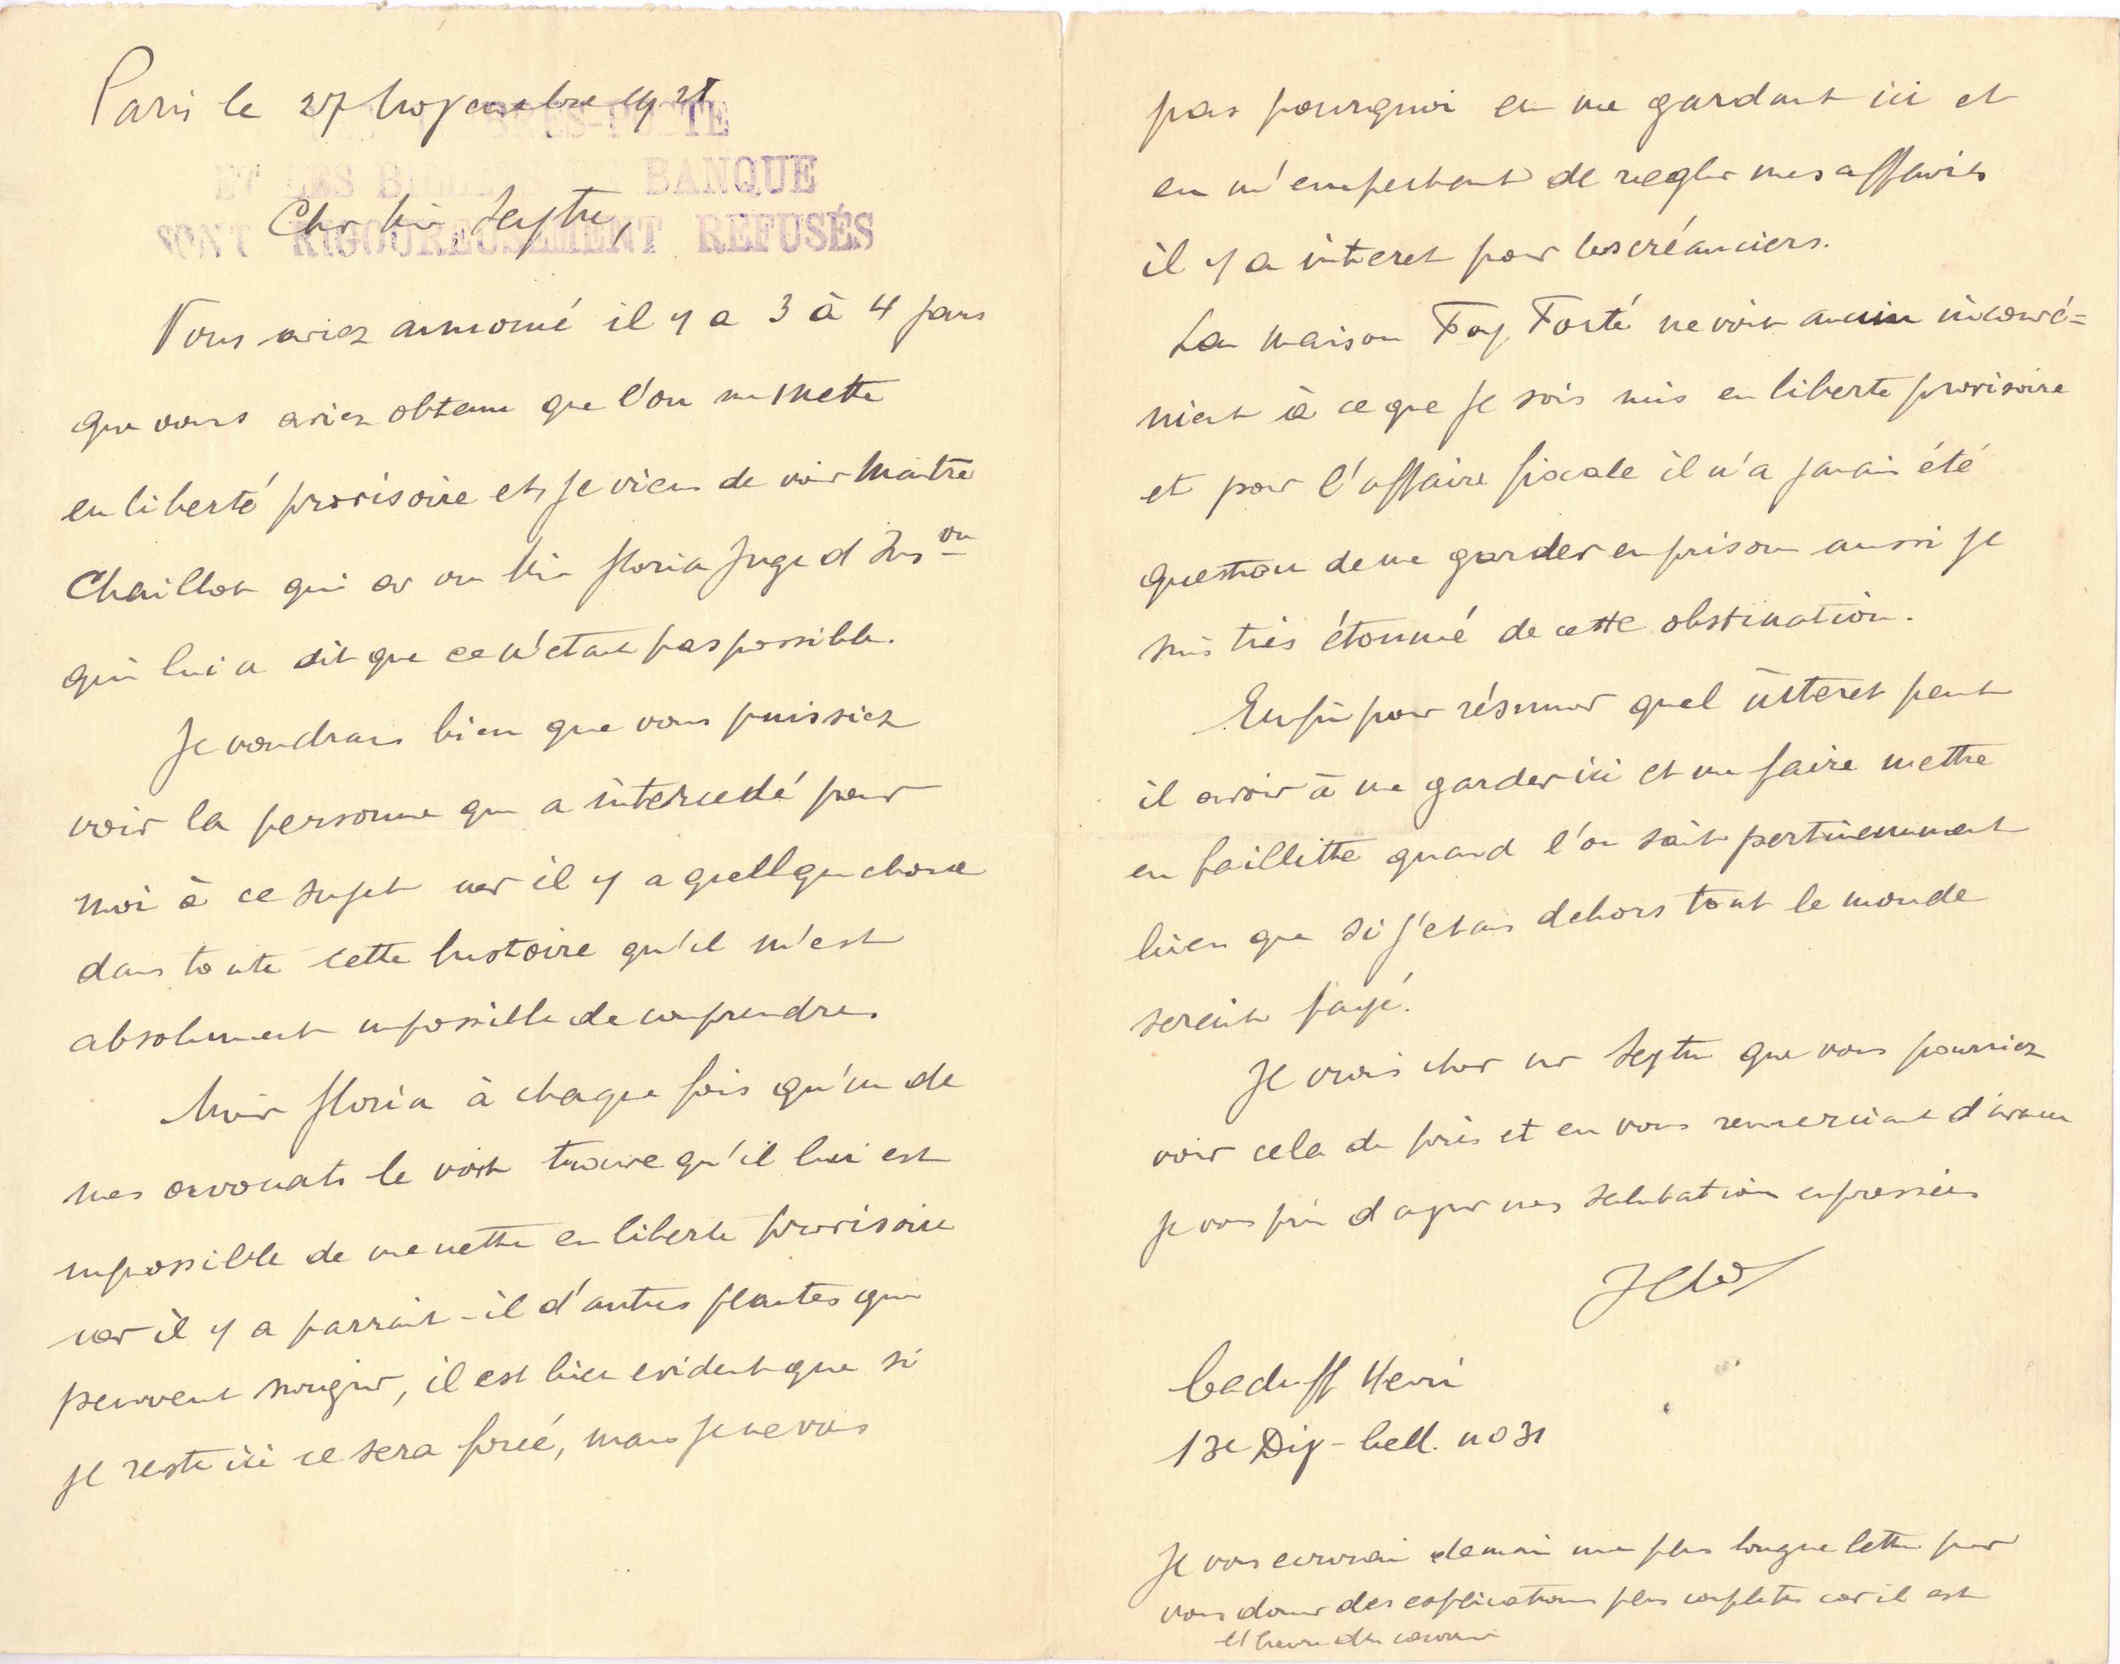 Paris le 27 Novembre 19
TIMBRES-POSTE
ET LES BILLETS DE BANQUE
SONT RIGOUREUSEMENT REFUSÉS
Cher Mr
Vous aviez annoncé il y a 3 à 4 jours
que vous aviez obtenu que l'on me mette
en liberté provisoire et je viens de voir Maitre
Chaillot qui a vu Mr Floria Juge d Inson
qui lui a dit que ce n'etait pas possible.
Je voudrais bien que vous puissiez
voir la personne qui a intercedé pour
moi à ce sujet car il y a quellque chose
dans toute cette histoire qu'il m'est
absolument impossible de comprendre.
Moir Floria à chaque fois qu'un de
mes avocats le voit trouve qu'il lui est
impossible de me mettre en liberte provisoire
car il y a parrait-il d'autres plaintes qui
peuvent surgir, il est bien evident que si
je reste ici ce sera forcé, mais je ne vois
pas pourquoi en me gardant ici et
en m'empechant de regler mes affaires
il y a interet pour les créanciers.
La Maison Forté ne voit aucun inconvé=
nient à ce que je sois mis en liberte provisoire
et pour l'affaire fiscale il n'a jamais été
question de me garder en prison aussi je
suis très étonné de cette obstination.
Enfin pour résumer quel interet peut
il avoir à me garder ici et me faire mettre
en faillitte quand l'on sait pertinemment
bien que si j'etais dehors tout le monde
serait payé.
Je crois cher mr que vous pourriez
voir cela de près et en vous remerciant d'avance
je vous prie d'agreer mes salutations empressées
Caduff Henri
13e Div - Cell. no 31
Je vous ecrirai demain une plus longue lettre pour
vous donner des explications plus completes car il est
l'heure du courrier